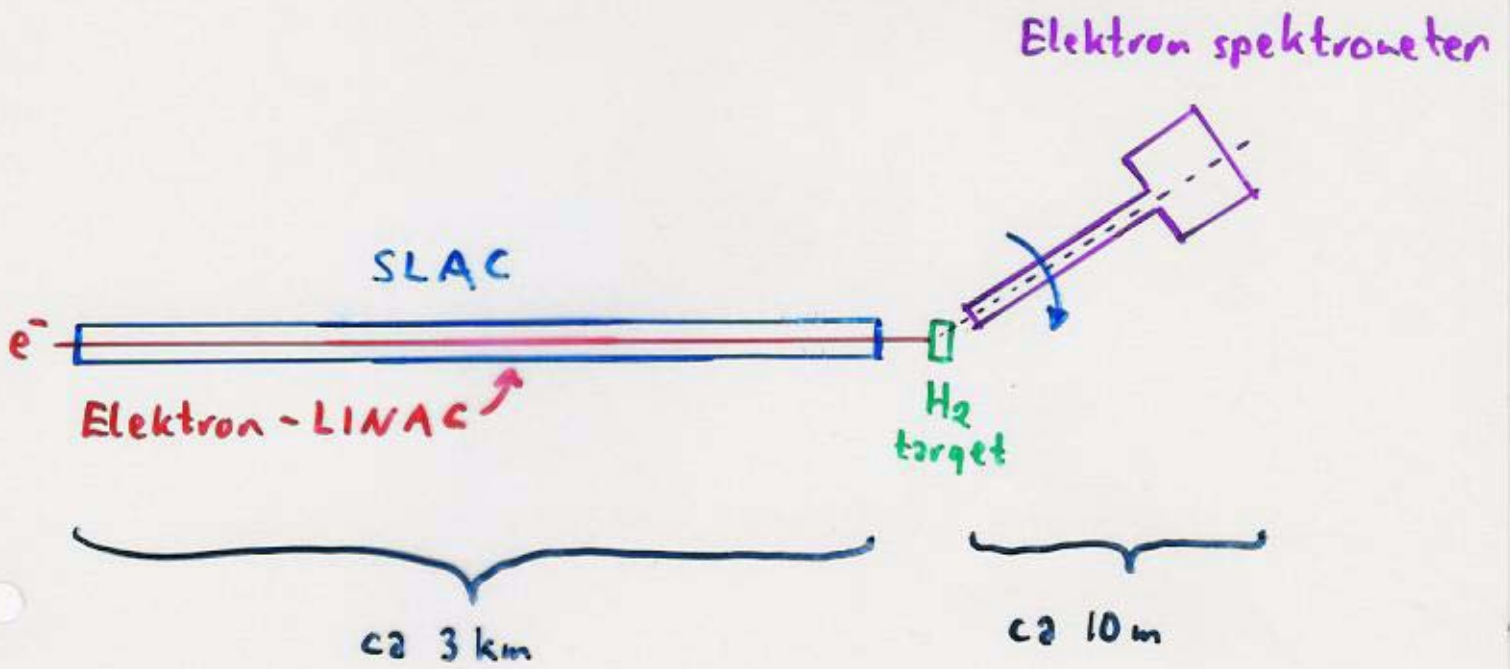 Elektron spektrometer
SLAC
e⁻
Elektron - LINAC
H₂
target
ca 3 km
ca 10 m